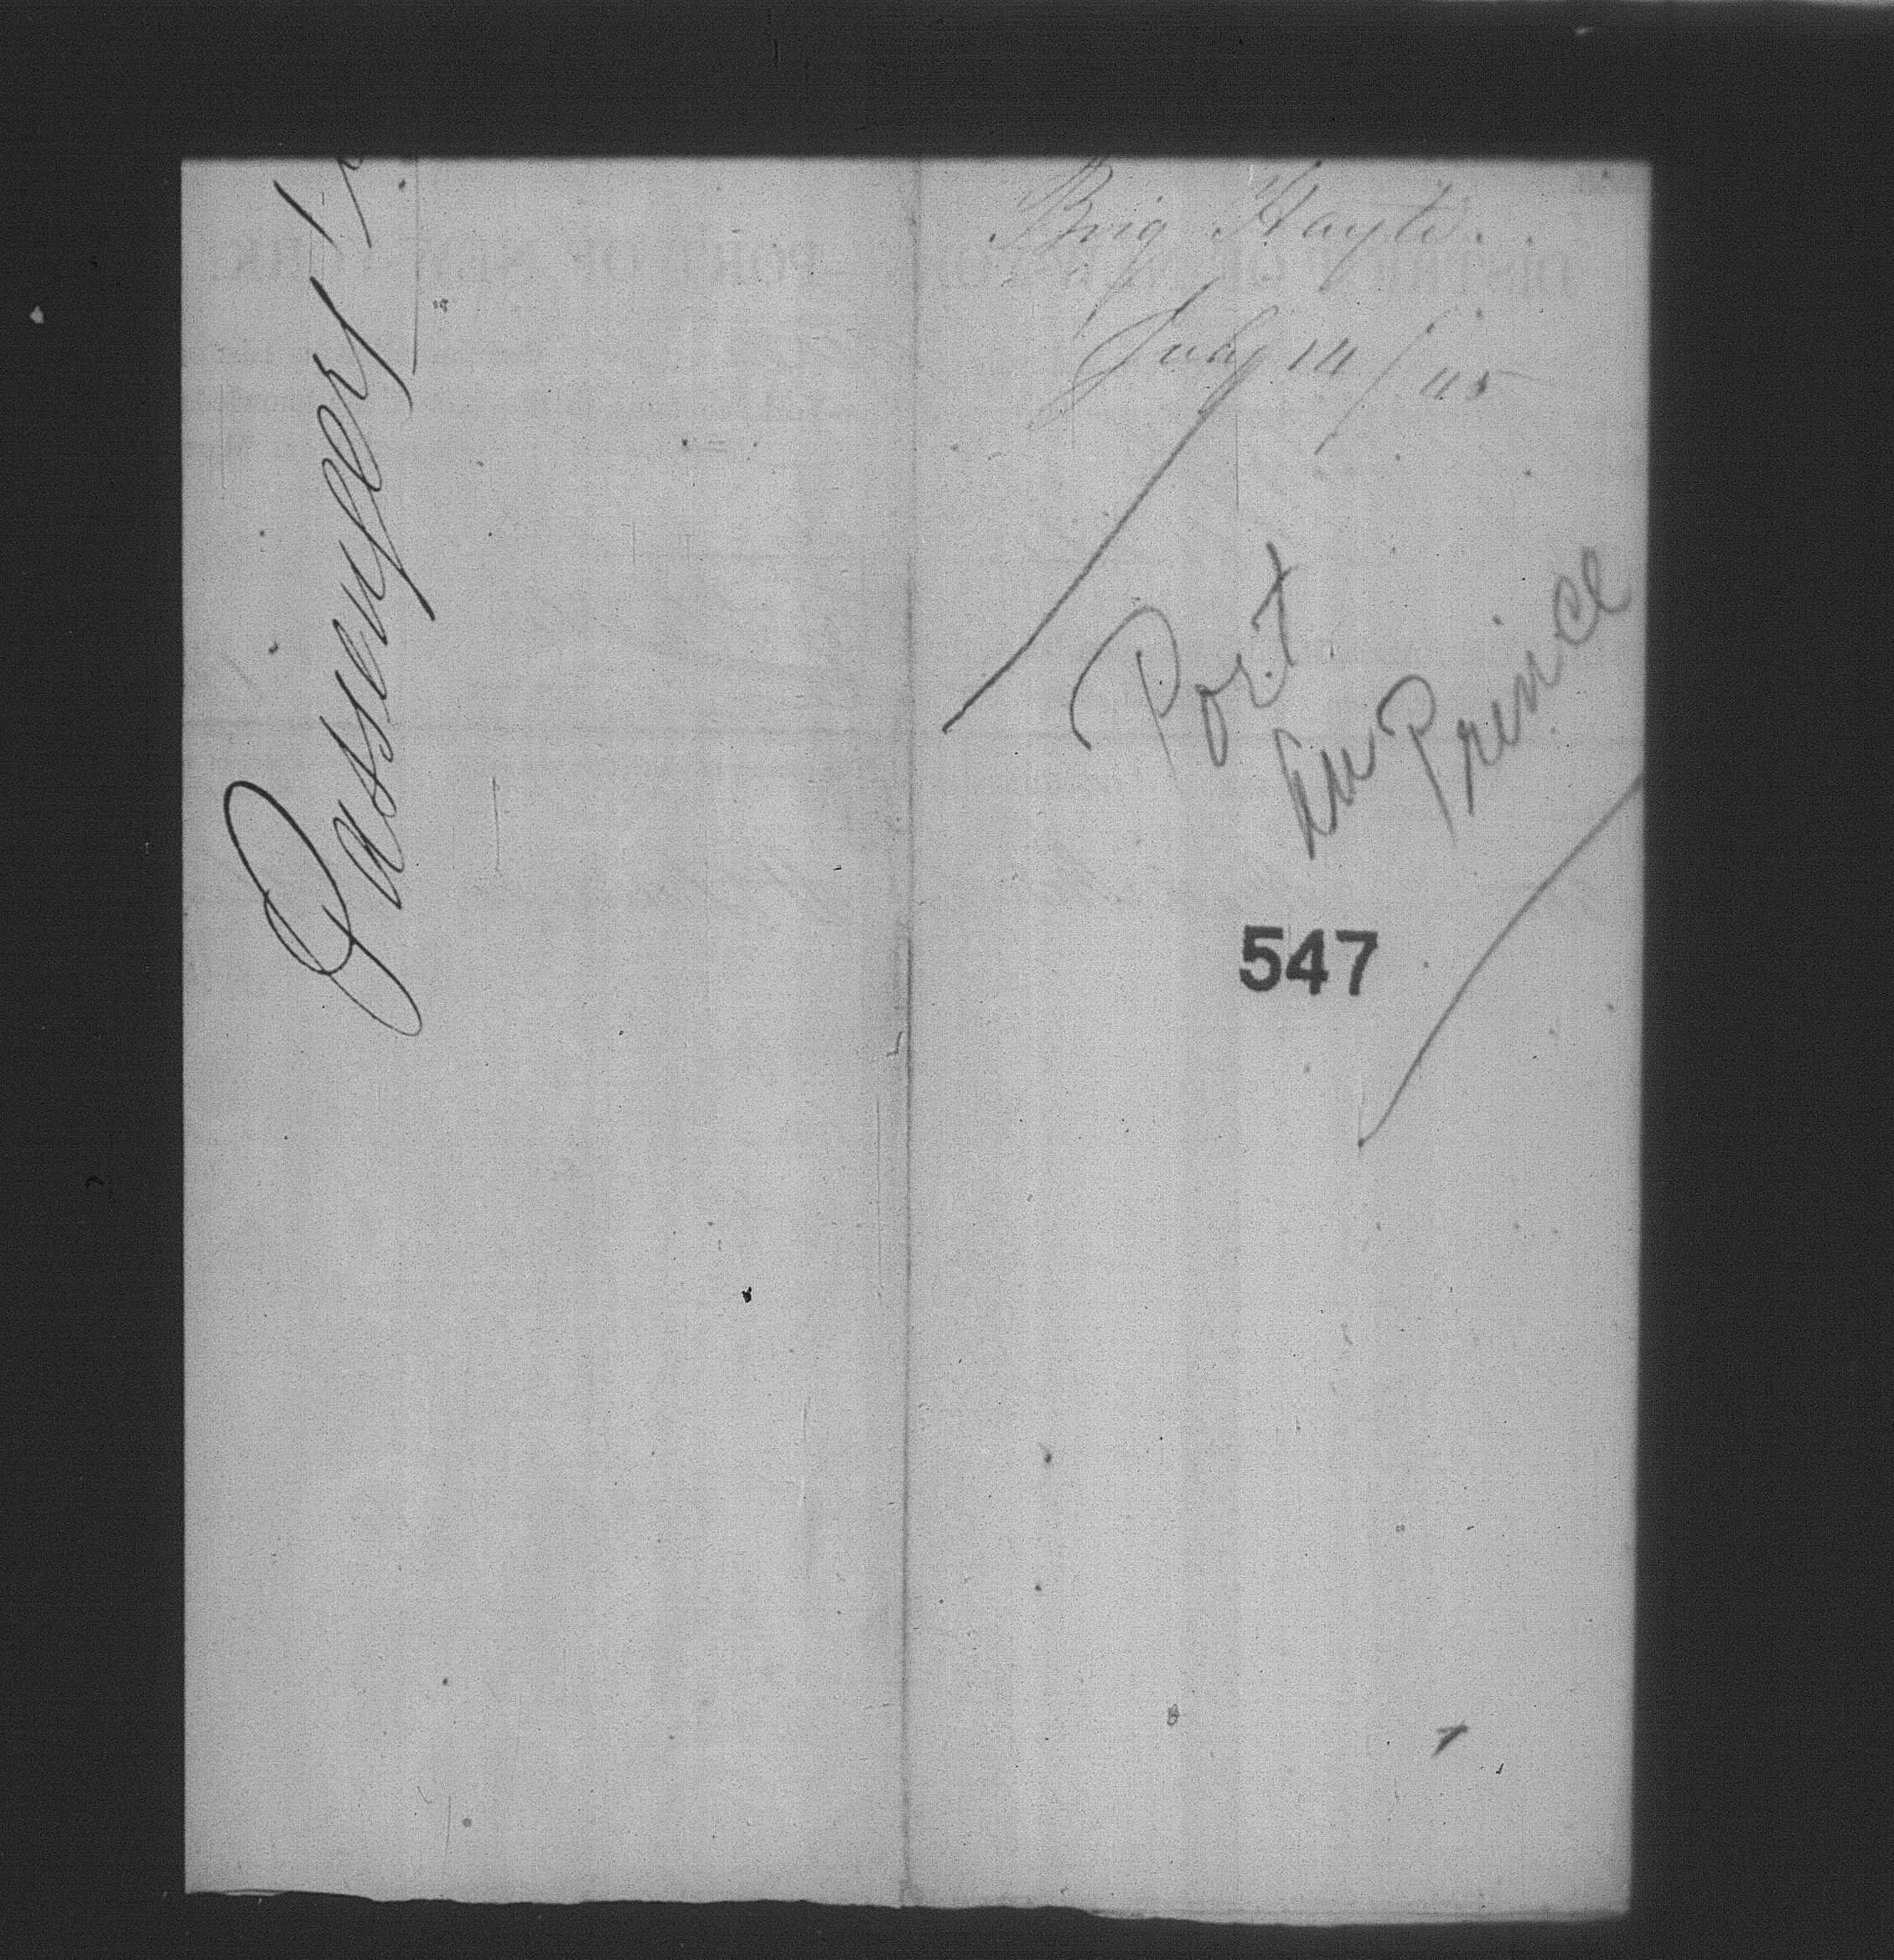 Passengers
Brig Hayti.
July 14/45
Port
Au Prince
547